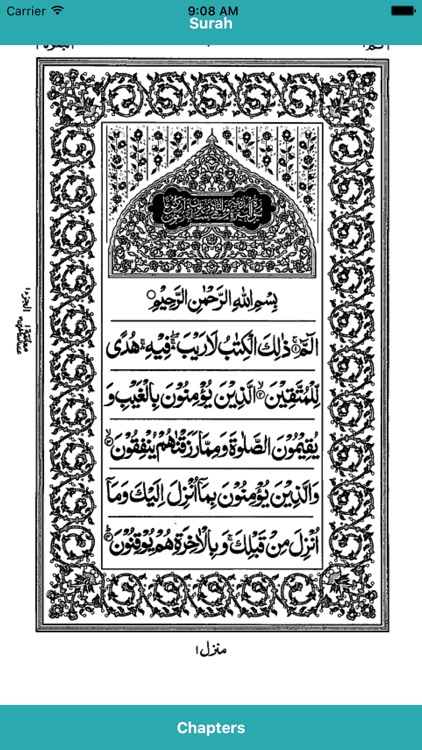 Carrier 9:08 AM
Surah
بِسْمِ اللهِ الرَّحْمٰنِ الرَّحِيْمِ
الٓمّٓ ۚ ذٰلِكَ الْكِتٰبُ لَارَيْبَ ۛ فِيْهِ ۛ هُدًى
لِّلْمُتَّقِيْنَ ۙ الَّذِيْنَ يُؤْمِنُوْنَ بِالْغَيْبِ وَ
يُقِيْمُوْنَ الصَّلٰوةَ وَمِمَّا رَزَقْنٰهُمْ يُنْفِقُوْنَ ۙ
وَالَّذِيْنَ يُؤْمِنُوْنَ بِمَآ اُنْزِلَ اِلَيْكَ وَمَآ
اُنْزِلَ مِنْ قَبْلِكَ ۚ وَبِالْاٰخِرَةِ هُمْ يُوْقِنُوْنَ ؕ
منزل ۱
Chapters